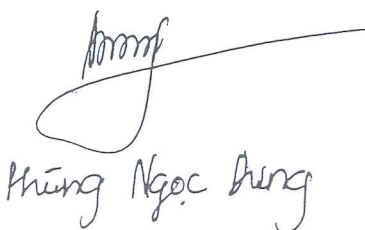 Phùng Ngọc Dung